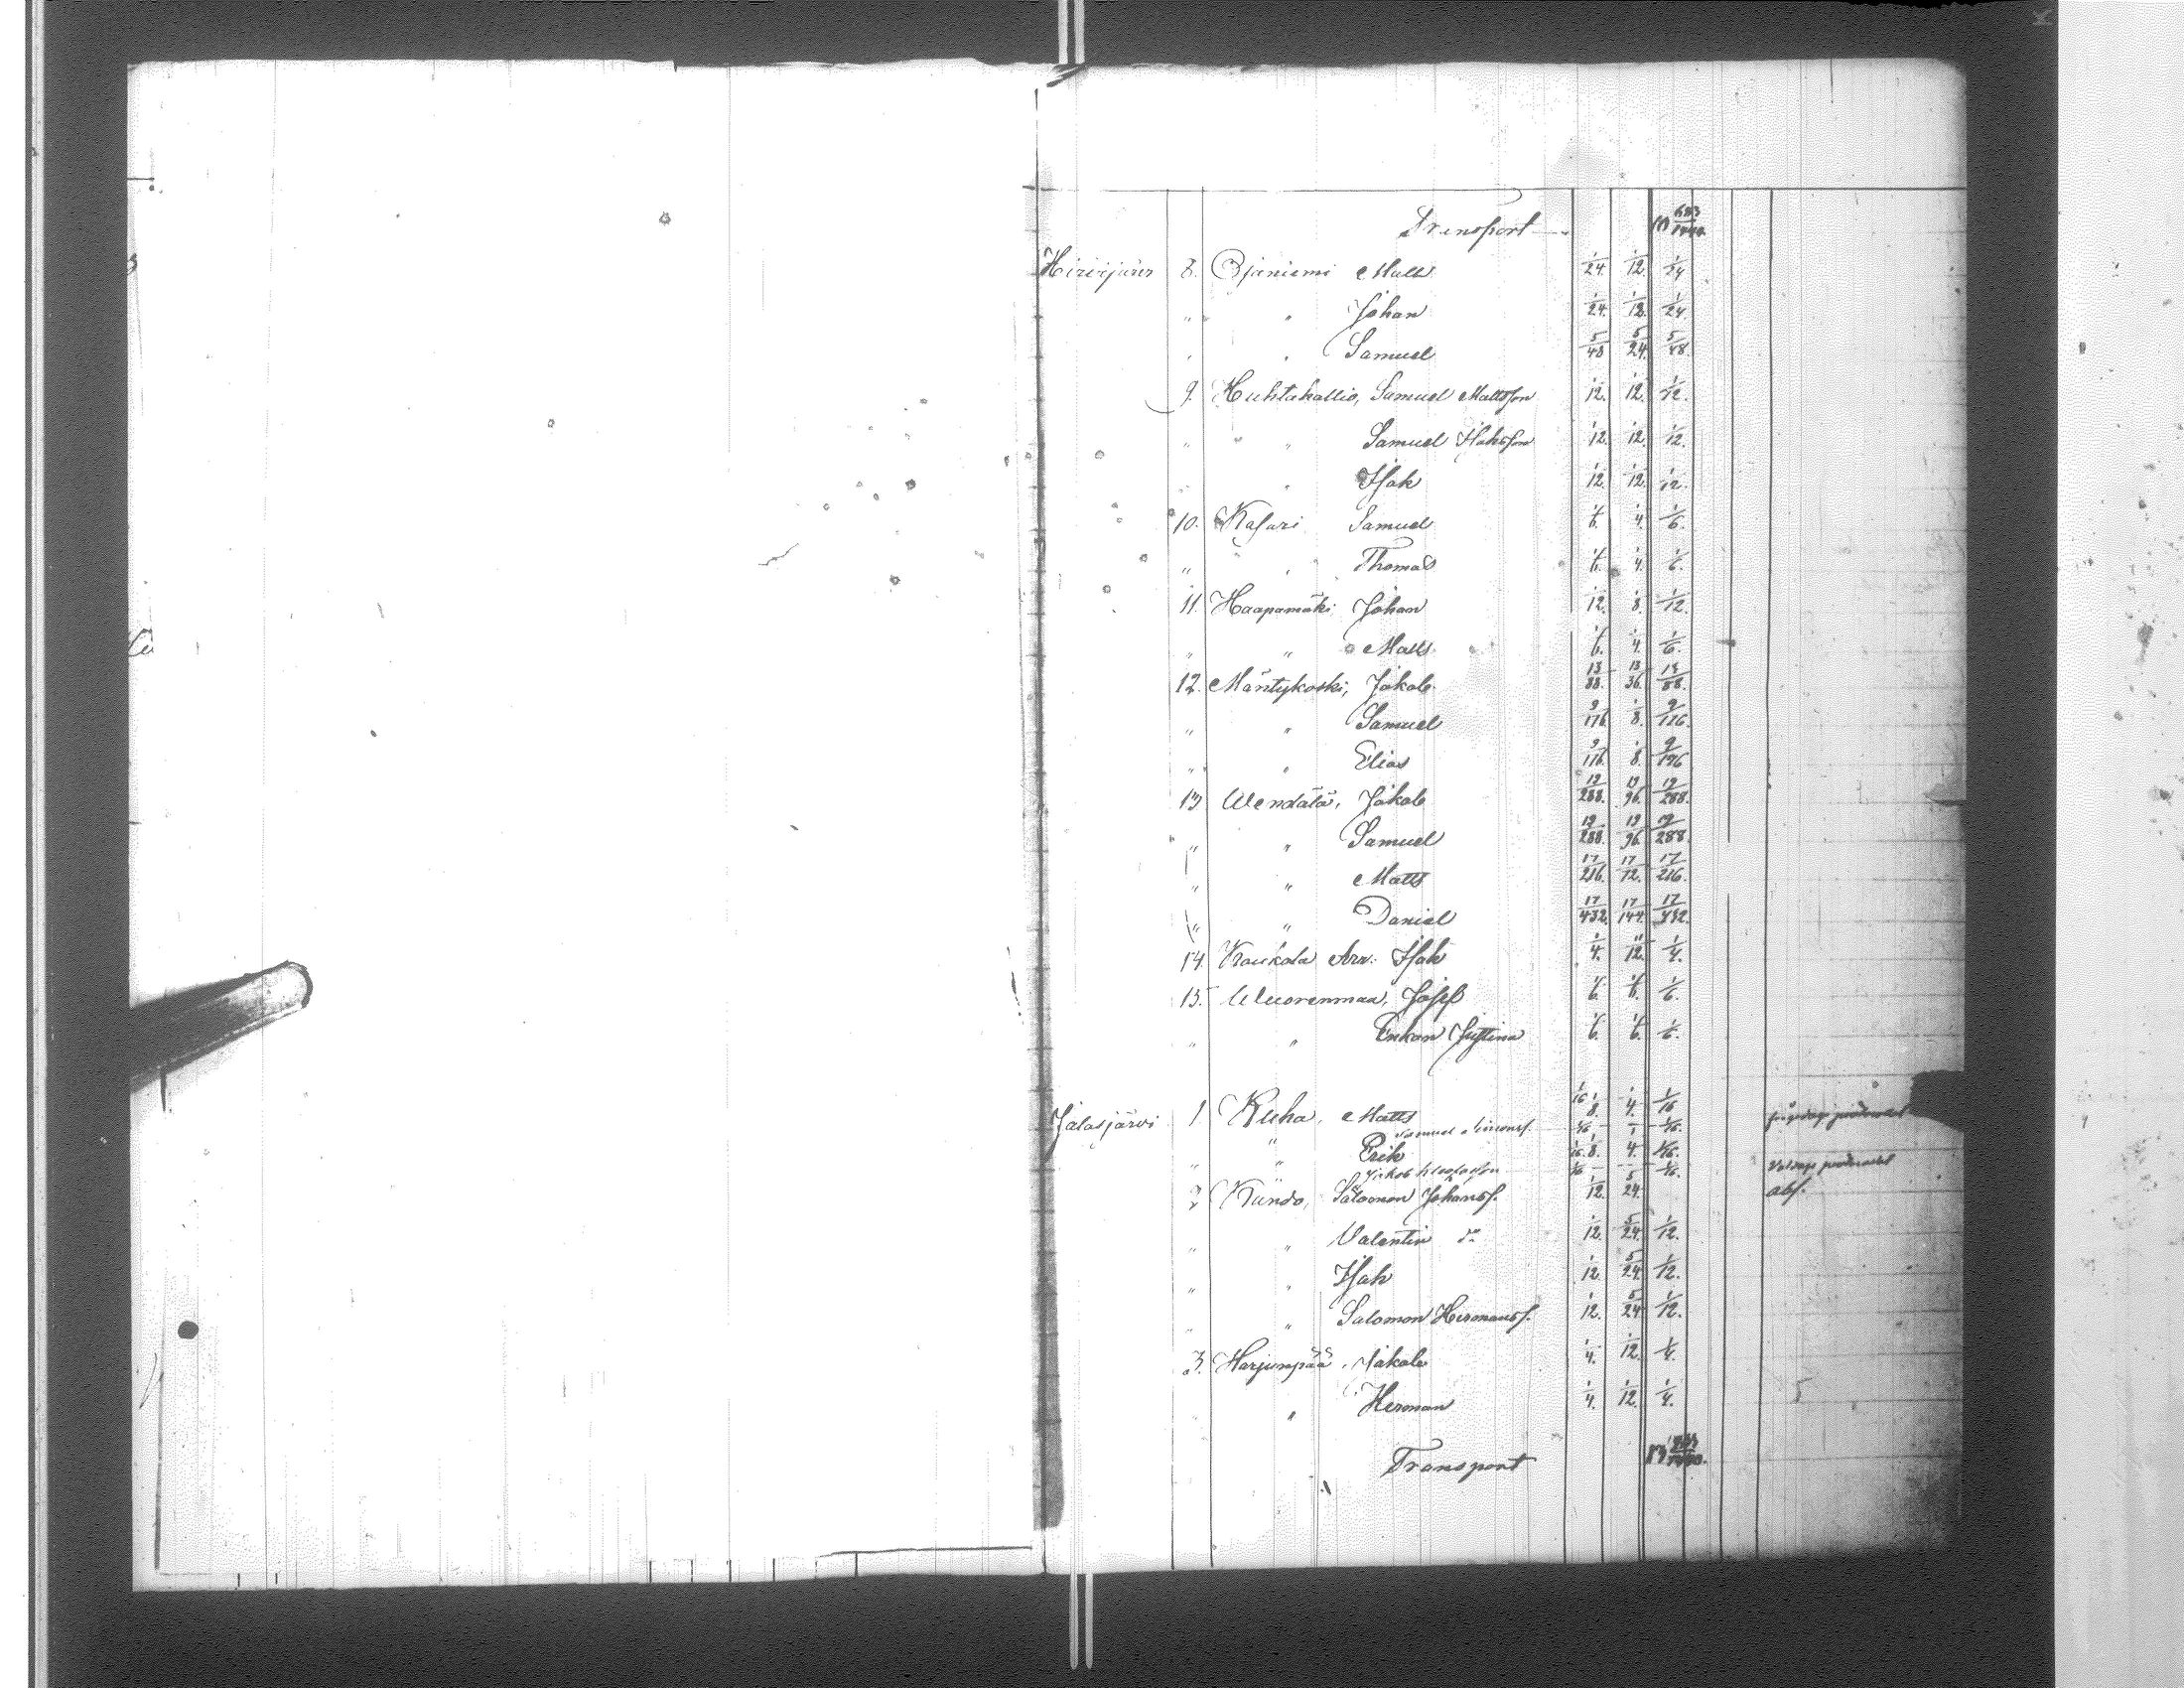 Transport
Hirvijärvi 8. Ojaniemi Matts 1/24. 1/12. 1/24
" " Johan 1/24. 1/12. 1/24.
" " Samuel 5/48 5/24. 5/48.
9. Huhtakallio, Samuel Mattsson 1/12. 1/12. 1/12.
" " Samuel Isaksson 1/12. 1/12. 1/12.
" " Isak 1/12. 1/12. 1/12.
10. Kasari Samuel 1/6. 1/4. 1/6.
" " Thomas 1/6. 1/4. 1/6.
11. Haapamäki Johan 1/12. 1/8. 1/12.
" " Matts 1/6. 1/4. 1/6.
12. Mäntykoski, Jakob 13/88. 13/36. 13/88.
" " Samuel 9/176. 1/8. 9/176.
" " Elias 9/176. 1/8. 9/176
13 Wendälä, Jakob 19/288. 19/96. 19/288.
" " Samuel 19/288. 19/96. 19/288.
" " Matts 17/216. 17/72. 17/216.
" " Daniel 17/432. 17/144. 17/432.
14. Isak 1/4. 11/12. 1/4.
15. Wuorenmaa, Josef 1/6. 1/6. 1/6.
" " Enkan Justina 1/6. 1/6. 1/6.
Jalasjärvi 1 Ruha, Matts 1/16 1/8. 1/4. 1/16
Samuel Simonss. 1/16 1/16.
" " Erik 1/16. 1/8. 1/4. 1/16.
Jakob 1/16 1/16.
2 Rundo, Salomon Johanss. 1/12. 5/24.
" " Valentin do 1/12. 5/24. 1/12.
" " Isak 1/12. 5/24. 1/12.
" " Salomon Hermanss. 1/12. 5/24. 1/12.
3. Harjunpää, Jakob 1/4. 1/12. 1/4.
" " Herman 1/4. 1/12. 1/4.
Transport